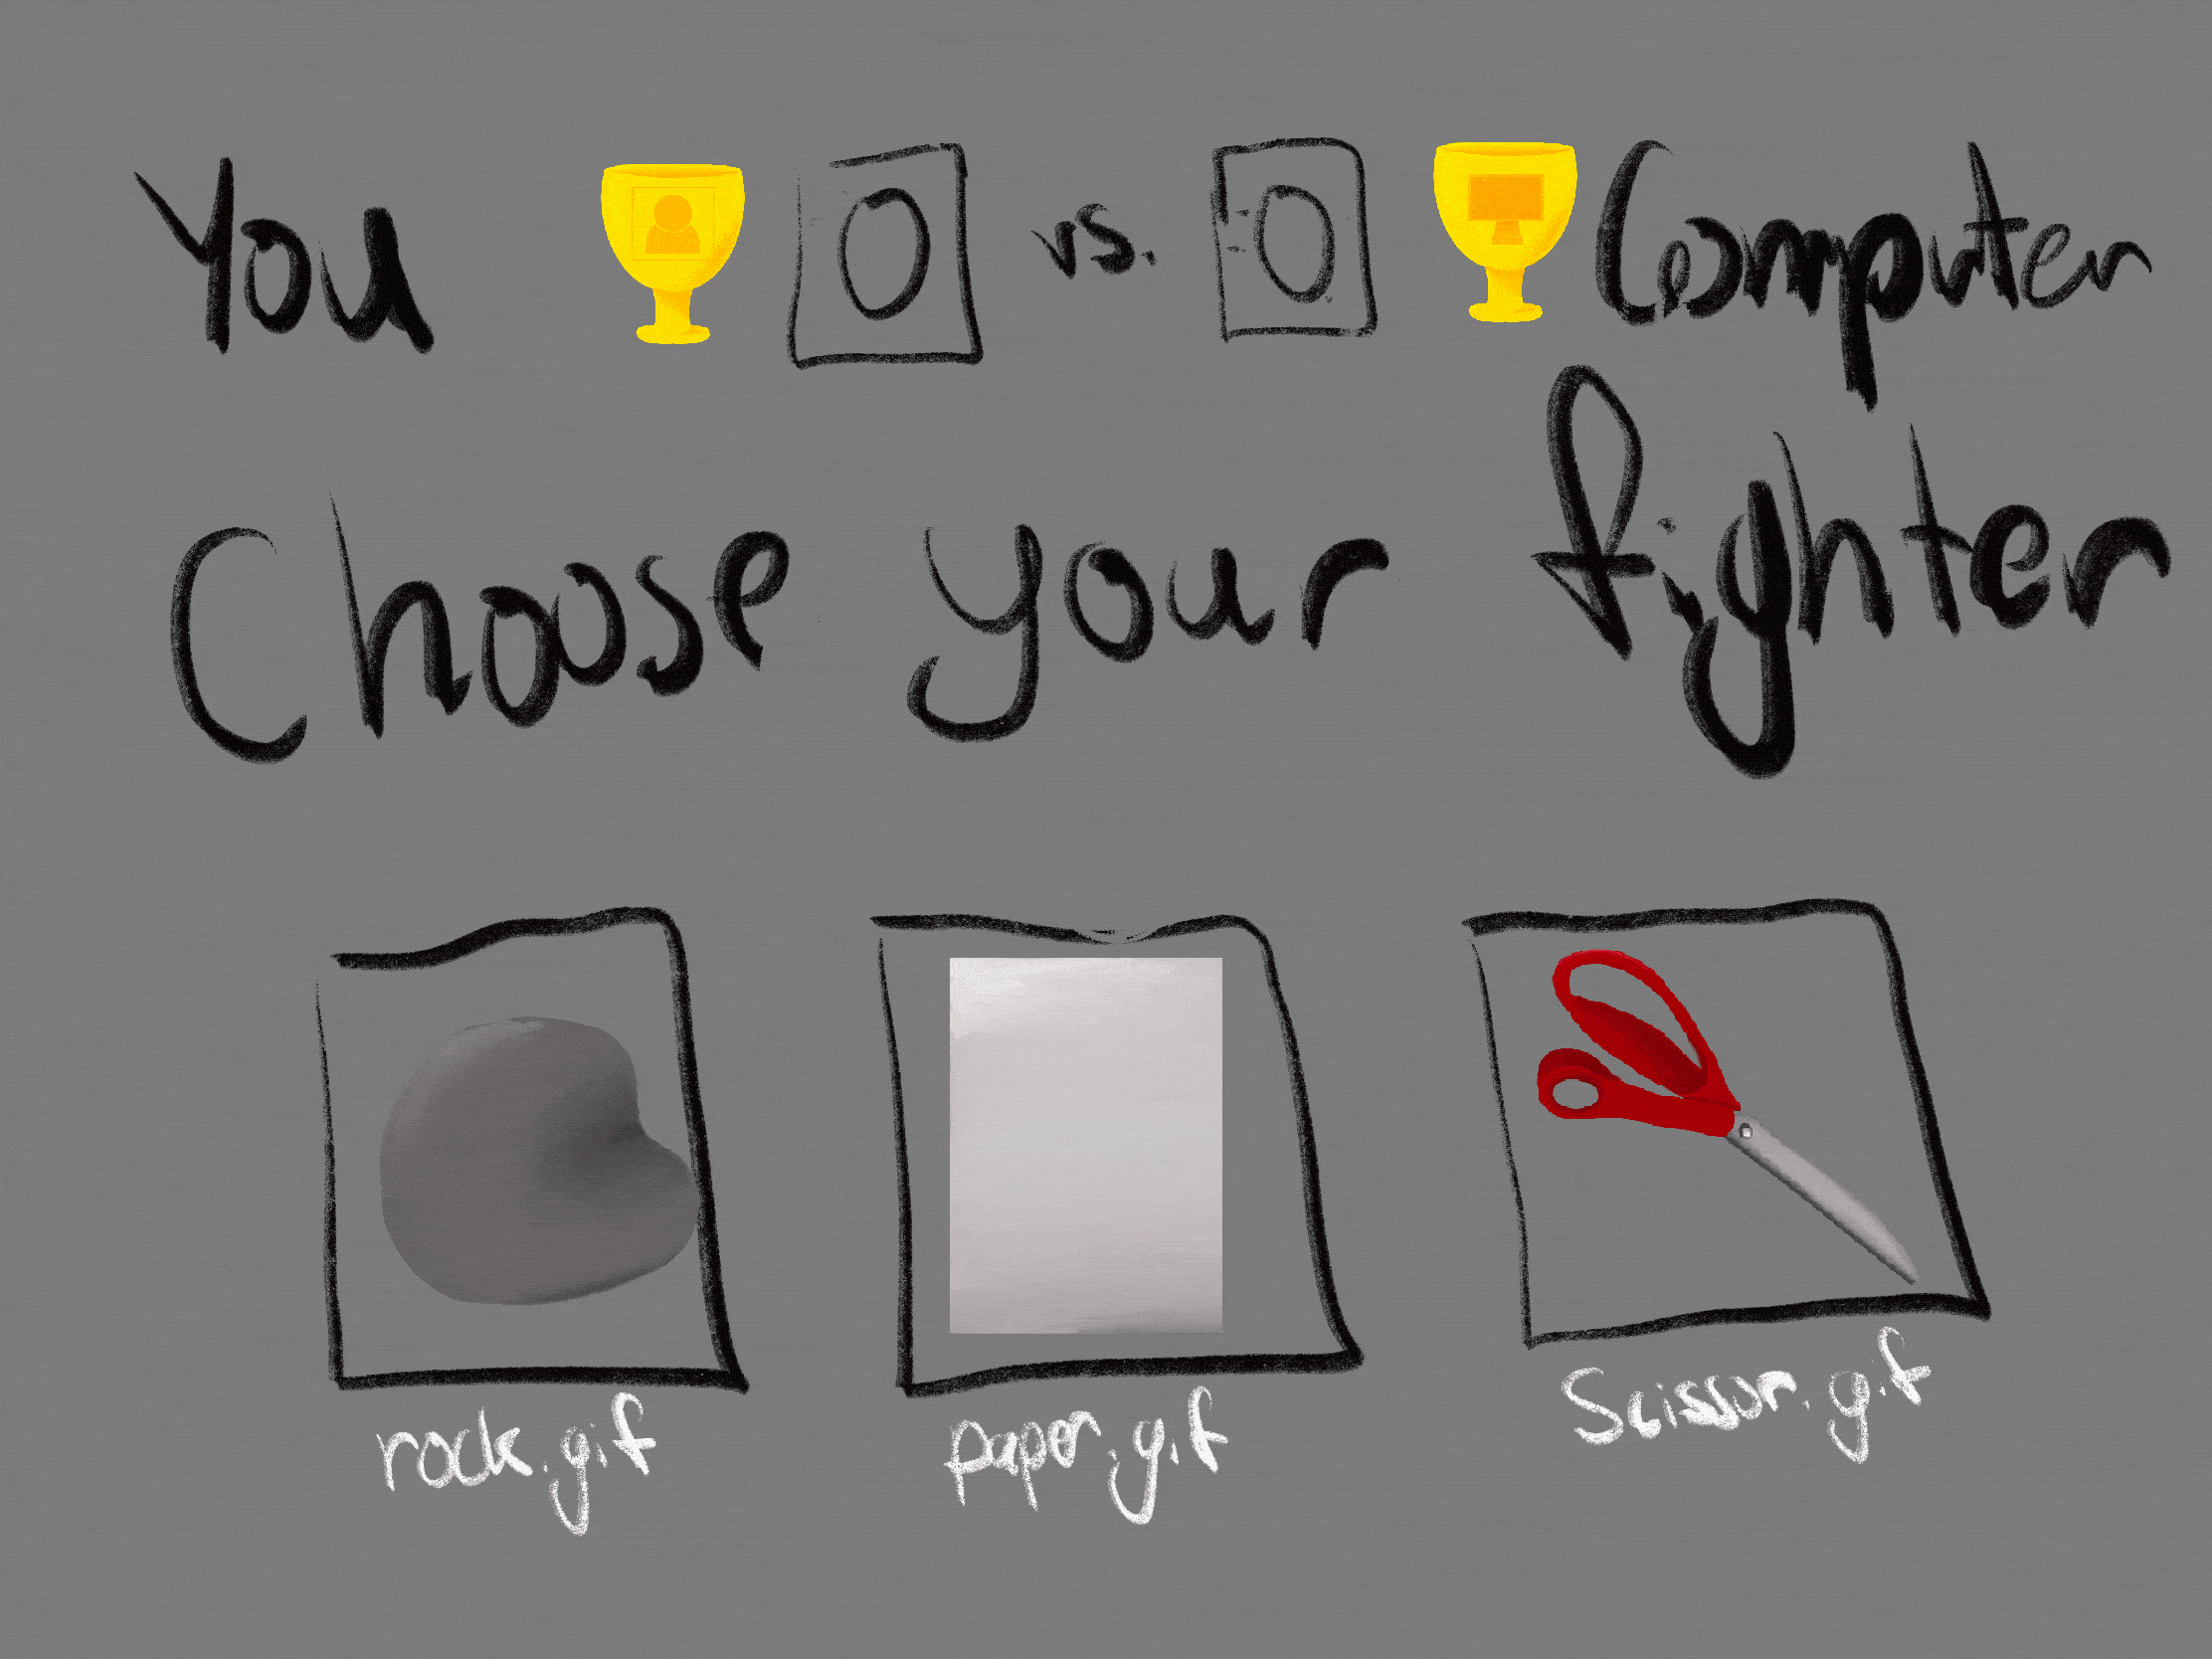 You 0 vs. 0 Computer
Choose your fighter
rock.gif paper.gif Scissor.gif